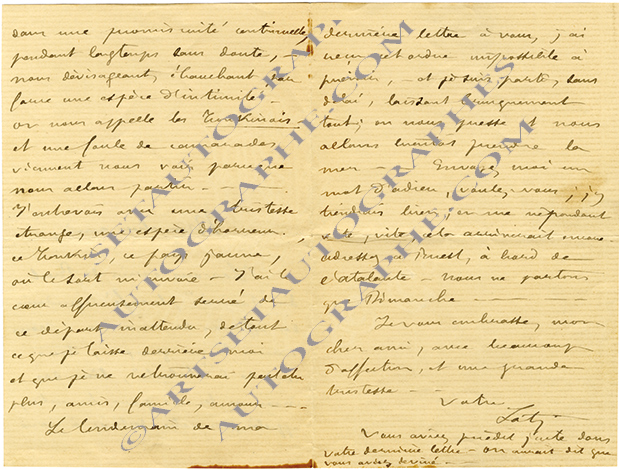 dans une promiscuité continuelle,
pendant longtemps sans doute, —
nous dévisageant, ébauchant
une espèce d'intimité. —
on nous appelle les Tonkinois
et une foule de camarades
viennent nous voir parce que
nous allons partir. —
J'entrevois avec une tristesse
étrange, une espèce d'horreur,
ce Tonkin, ce pays jaune,
où le sort m'envoie — J'ai le
cœur affreusement serré de
ce départ inattendu, de tout
ce que je laisse derrière moi
et que je ne retrouverai peut-être
plus, amis, famille, amour — —
Le lendemain de ma
dernière lettre à vous, j'ai
reçu cet ordre impossible à
prévoir, et je suis parti, sans
délai, laissant
tout; on nous presse et nous
allons bientôt prendre la
mer — Envoyez moi un
mot d'adieu, voulez-vous; j'y
tiendrais bien; en me répondant
vite, vite, cela arriverait encore
adressez à Brest, à bord de
l'Atalante — Nous ne partons
que Dimanche — —
Je vous embrasse, mon
cher ami, avec beaucoup
d'affection, et une grande
tristesse —
Votre
Loti
Vous aviez prédit juste dans
votre dernière lettre — on aurait dit que
vous aviez deviné —
©ARTSETAUTOGRAPHES
AUTOGRAPHE.COM
ARTSETAUTOGRAPHES
AUTOGRAPHE.COM